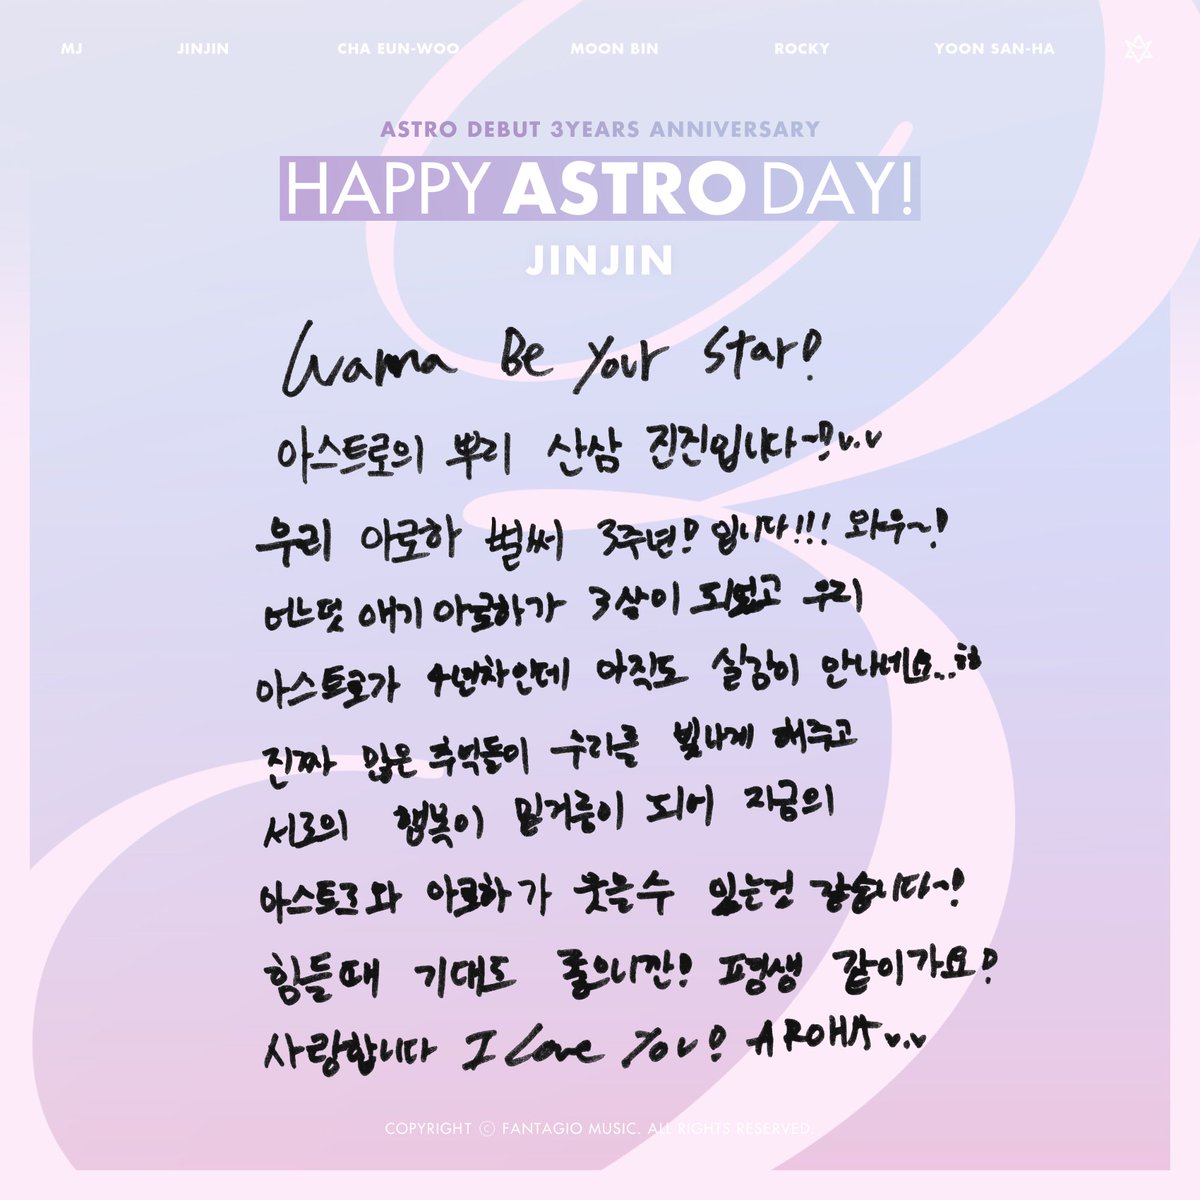 MJ JINJIN CHA EUN-WOO MOON BIN ROCKY YOON SAN-HA
ASTRO DEBUT 3YEARS ANNIVERSARY
HAPPY ASTRO DAY!
JINJIN
Wanna Be Your Star!
아스트로의 뿌리 산삼 진진입니다~!v.v
우리 아로하 벌써 3주년! 입니다!!! 와우~!
어느덧 애기 아로하가 3살이 되었고 우리
아스트로가 4년차인데 아직도 실감이 안나네요..ㅎㅎ
진짜 많은 추억들이 우리를 빛나게 해주고
서로의 행복이 밑거름이 되어 지금의
아스트로와 아로하가 웃을수 있는것 같습니다~!
힘들때 기대도 좋으니깐! 평생 같이가요!
사랑합니다 I Love You! AROHA v.v
COPYRIGHT ⓒ FANTAGIO MUSIC. ALL RIGHTS RESERVED.